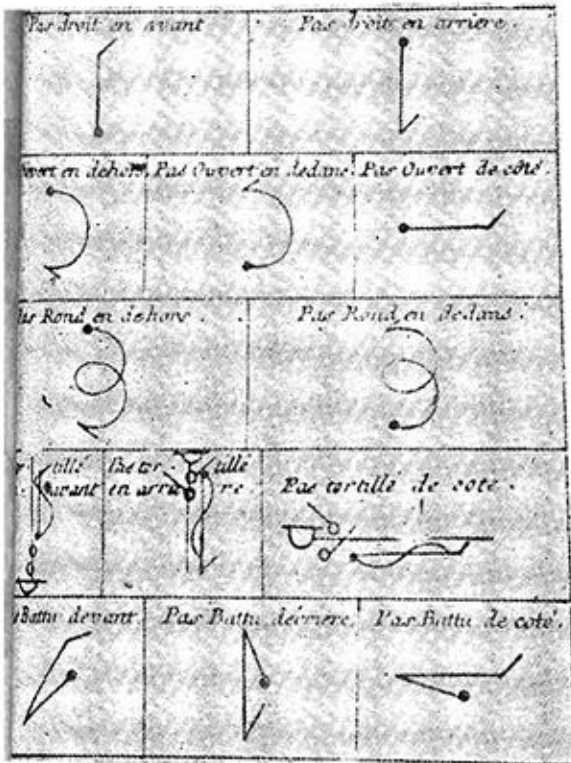 Pas droit en avant
Pas droit en arriere.
en dehors.
Pas Ouvert en dedans.
Pas Ouvert de côté.
Rond en dehors.
Pas Rond en dedans.
tillé
avant
Pas tor tillé
en arrie re.
Pas tortillé de coté.
Battu devant.
Pas Battu derriere.
Pas Battu de coté.